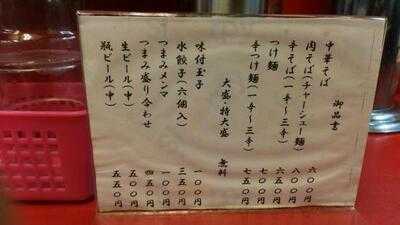 御品書
中華そば 六〇〇円
肉そば(チャーシュー麺) 八〇〇円
辛そば(一辛〜三辛) 六五〇円
つけ麺 七〇〇円
辛つけ麺(一辛〜三辛) 七五〇円
大盛・特大盛 無料
味付玉子 一〇〇円
水餃子(六個入) 三五〇円
つまみメンマ 一〇〇円
つまみ盛り合わせ 四五〇円
生ビール(中) 五五〇円
瓶ビール(中) 五五〇円